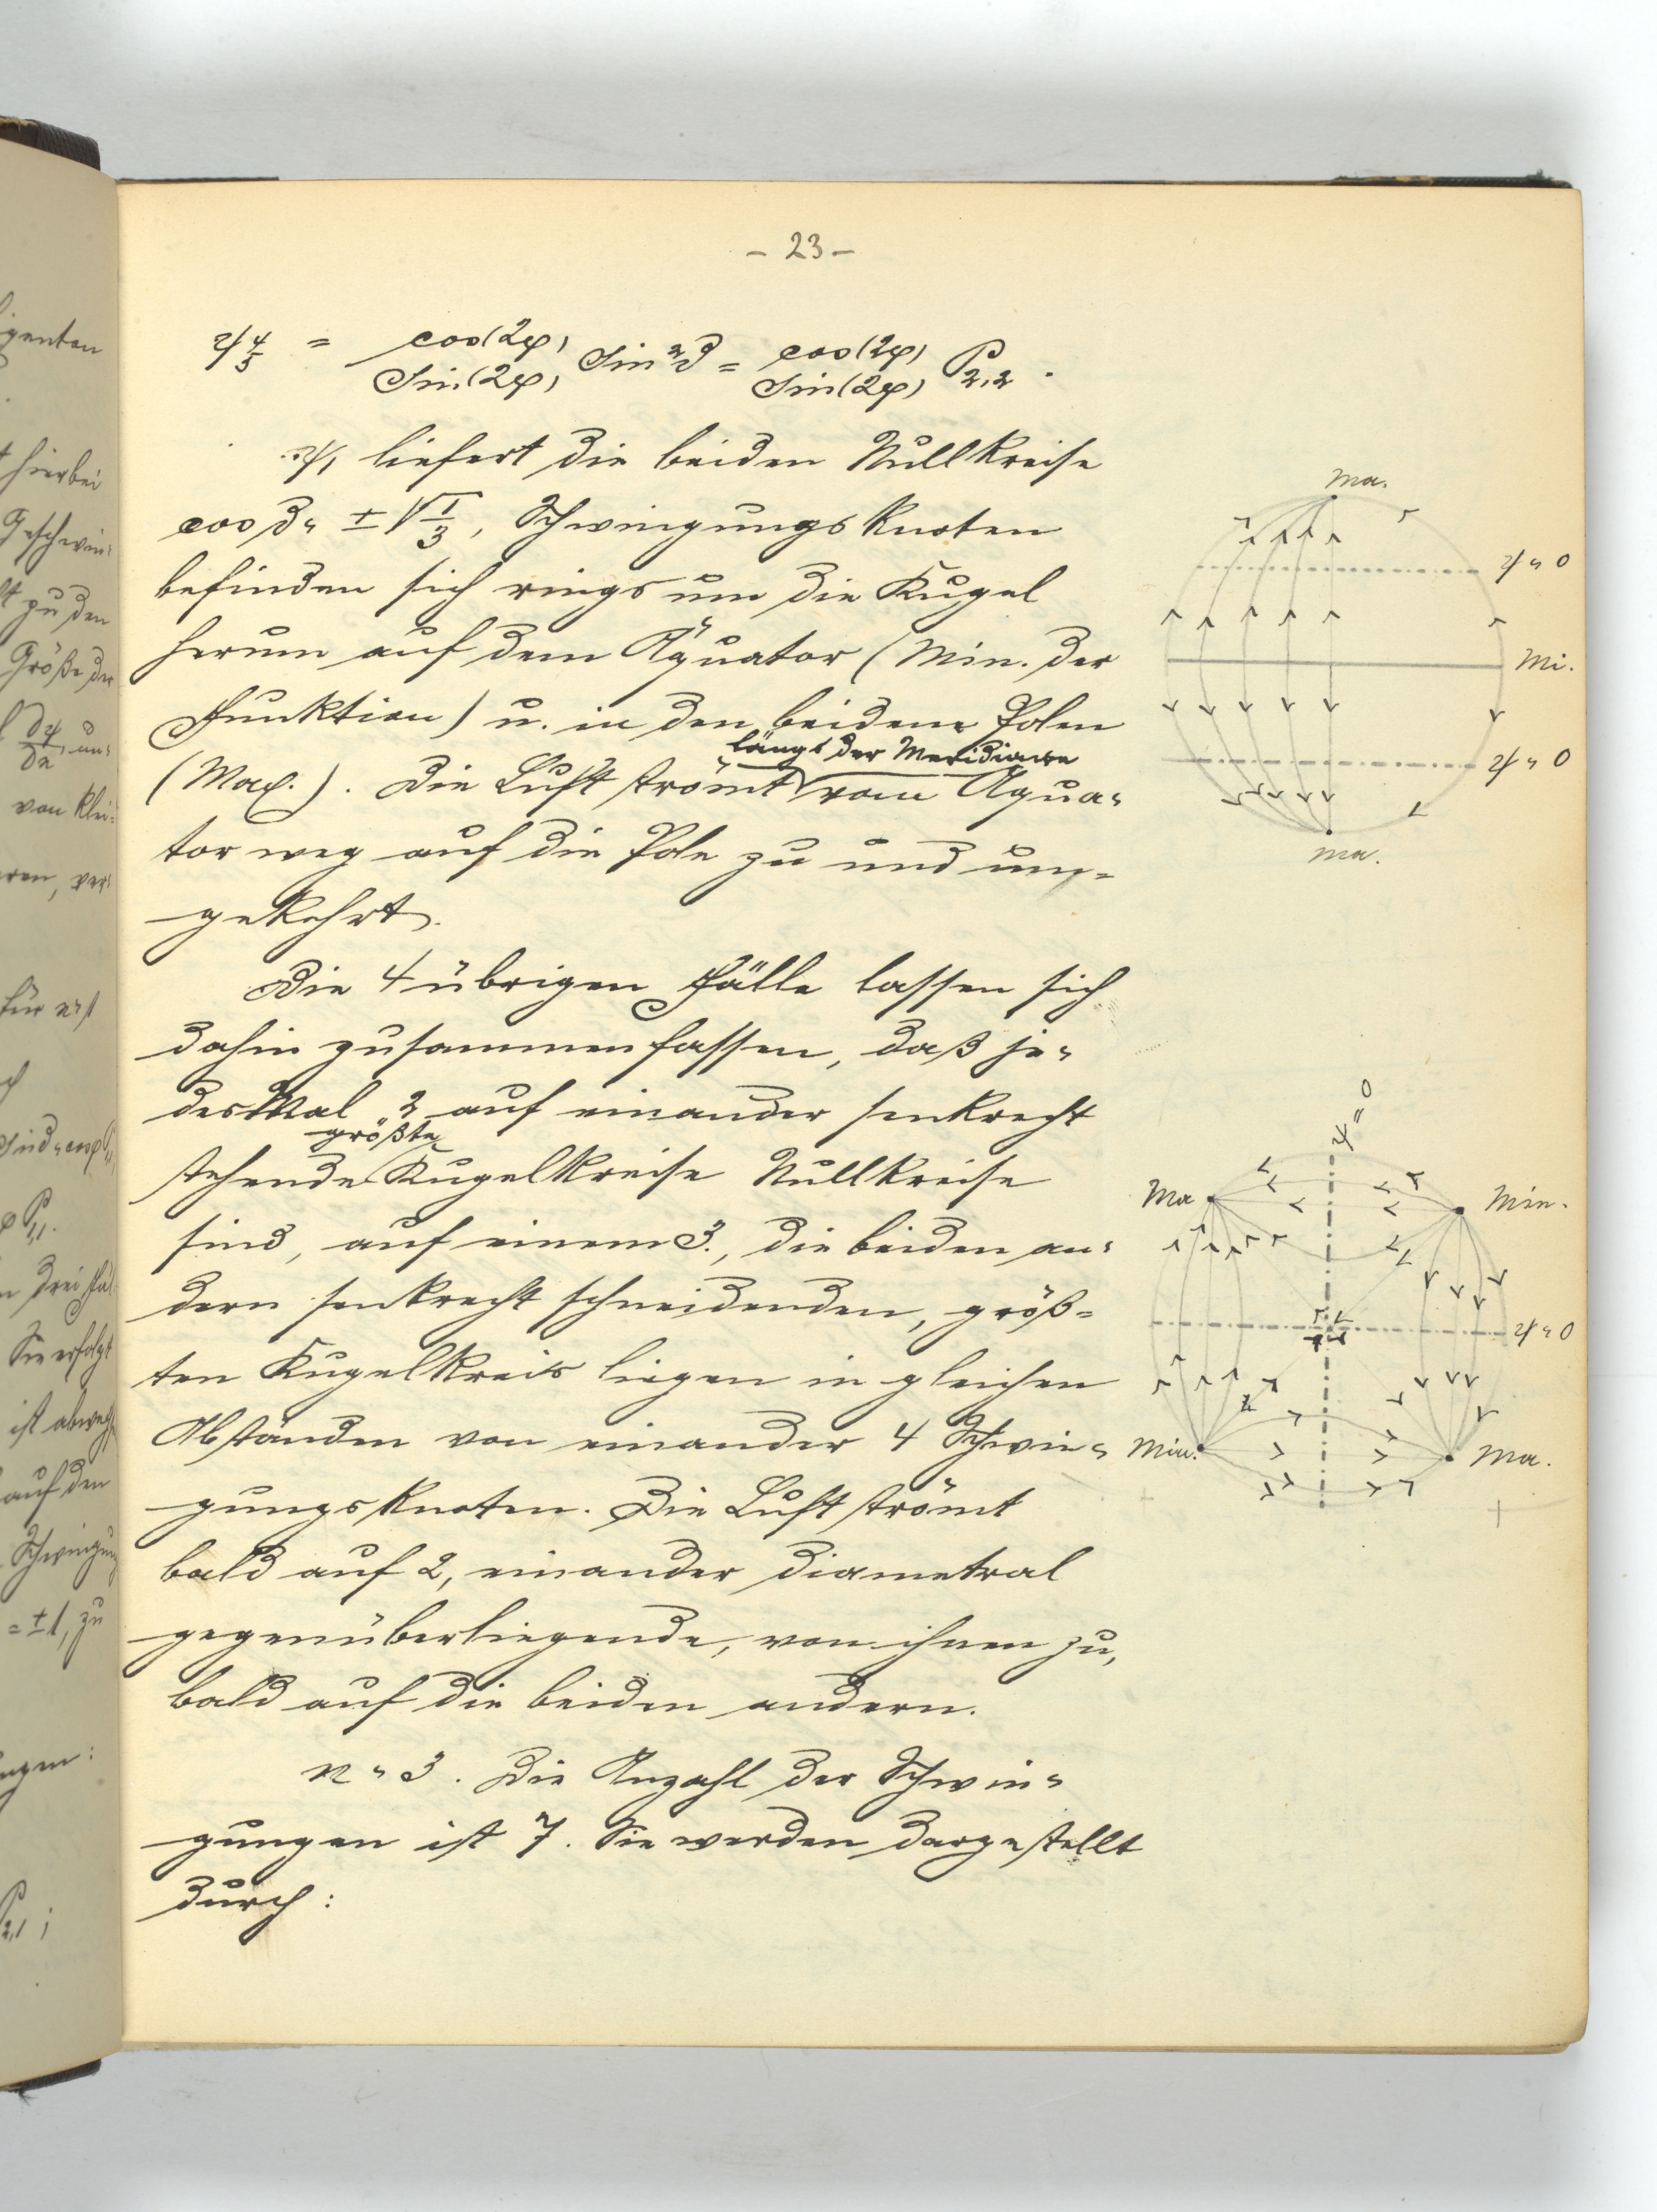 - 23 -
ψ 4/5 = cos(2φ)/sin(2φ) sin²ϑ = cos(2φ)/sin(2φ) P2,2 .
ψ1 liefert die beiden Nullkreise
cos ϑ = ± √1/3, Schwingungsknoten
befinden sich rings um die Kugel
herum auf dem Äquator (Min. der
Funktion) u. in den beiden Polen
(Max.). Die Luft strömt längs der Meridiane vom Äqua=
tor weg auf die Pole zu und um=
gekehrt.
Die 4 übrigen Fälle lassen sich
dahin zusammenfassen, daß je=
desMal 2 auf einander senkrecht
stehende größte Kugelkreise Nullkreise
sind, auf einem 3., die beiden an=
dern senkrecht schneidenden, größ=
ten Kugelkreis liegen in gleichen
Abständen von einander 4 Schwin=
gungsknoten. Die Luft strömt
bald auf 2, einander diametral
gegenüberliegende, von ihnen zu,
bald auf die beiden andern.
n = 3. Die Anzahl der Schwin=
gungen ist 7. Sie werden dargestellt
durch:
Ma.
ψ = 0
Mi.
ψ = 0
Ma.
ψ = 0
Ma
Min.
ψ = 0
Min.
Ma.
hierbei
zu den
Größe der
von klei=
für n=1
Sie erfolgt
auf den
= ±1, zu
P2,1 ;